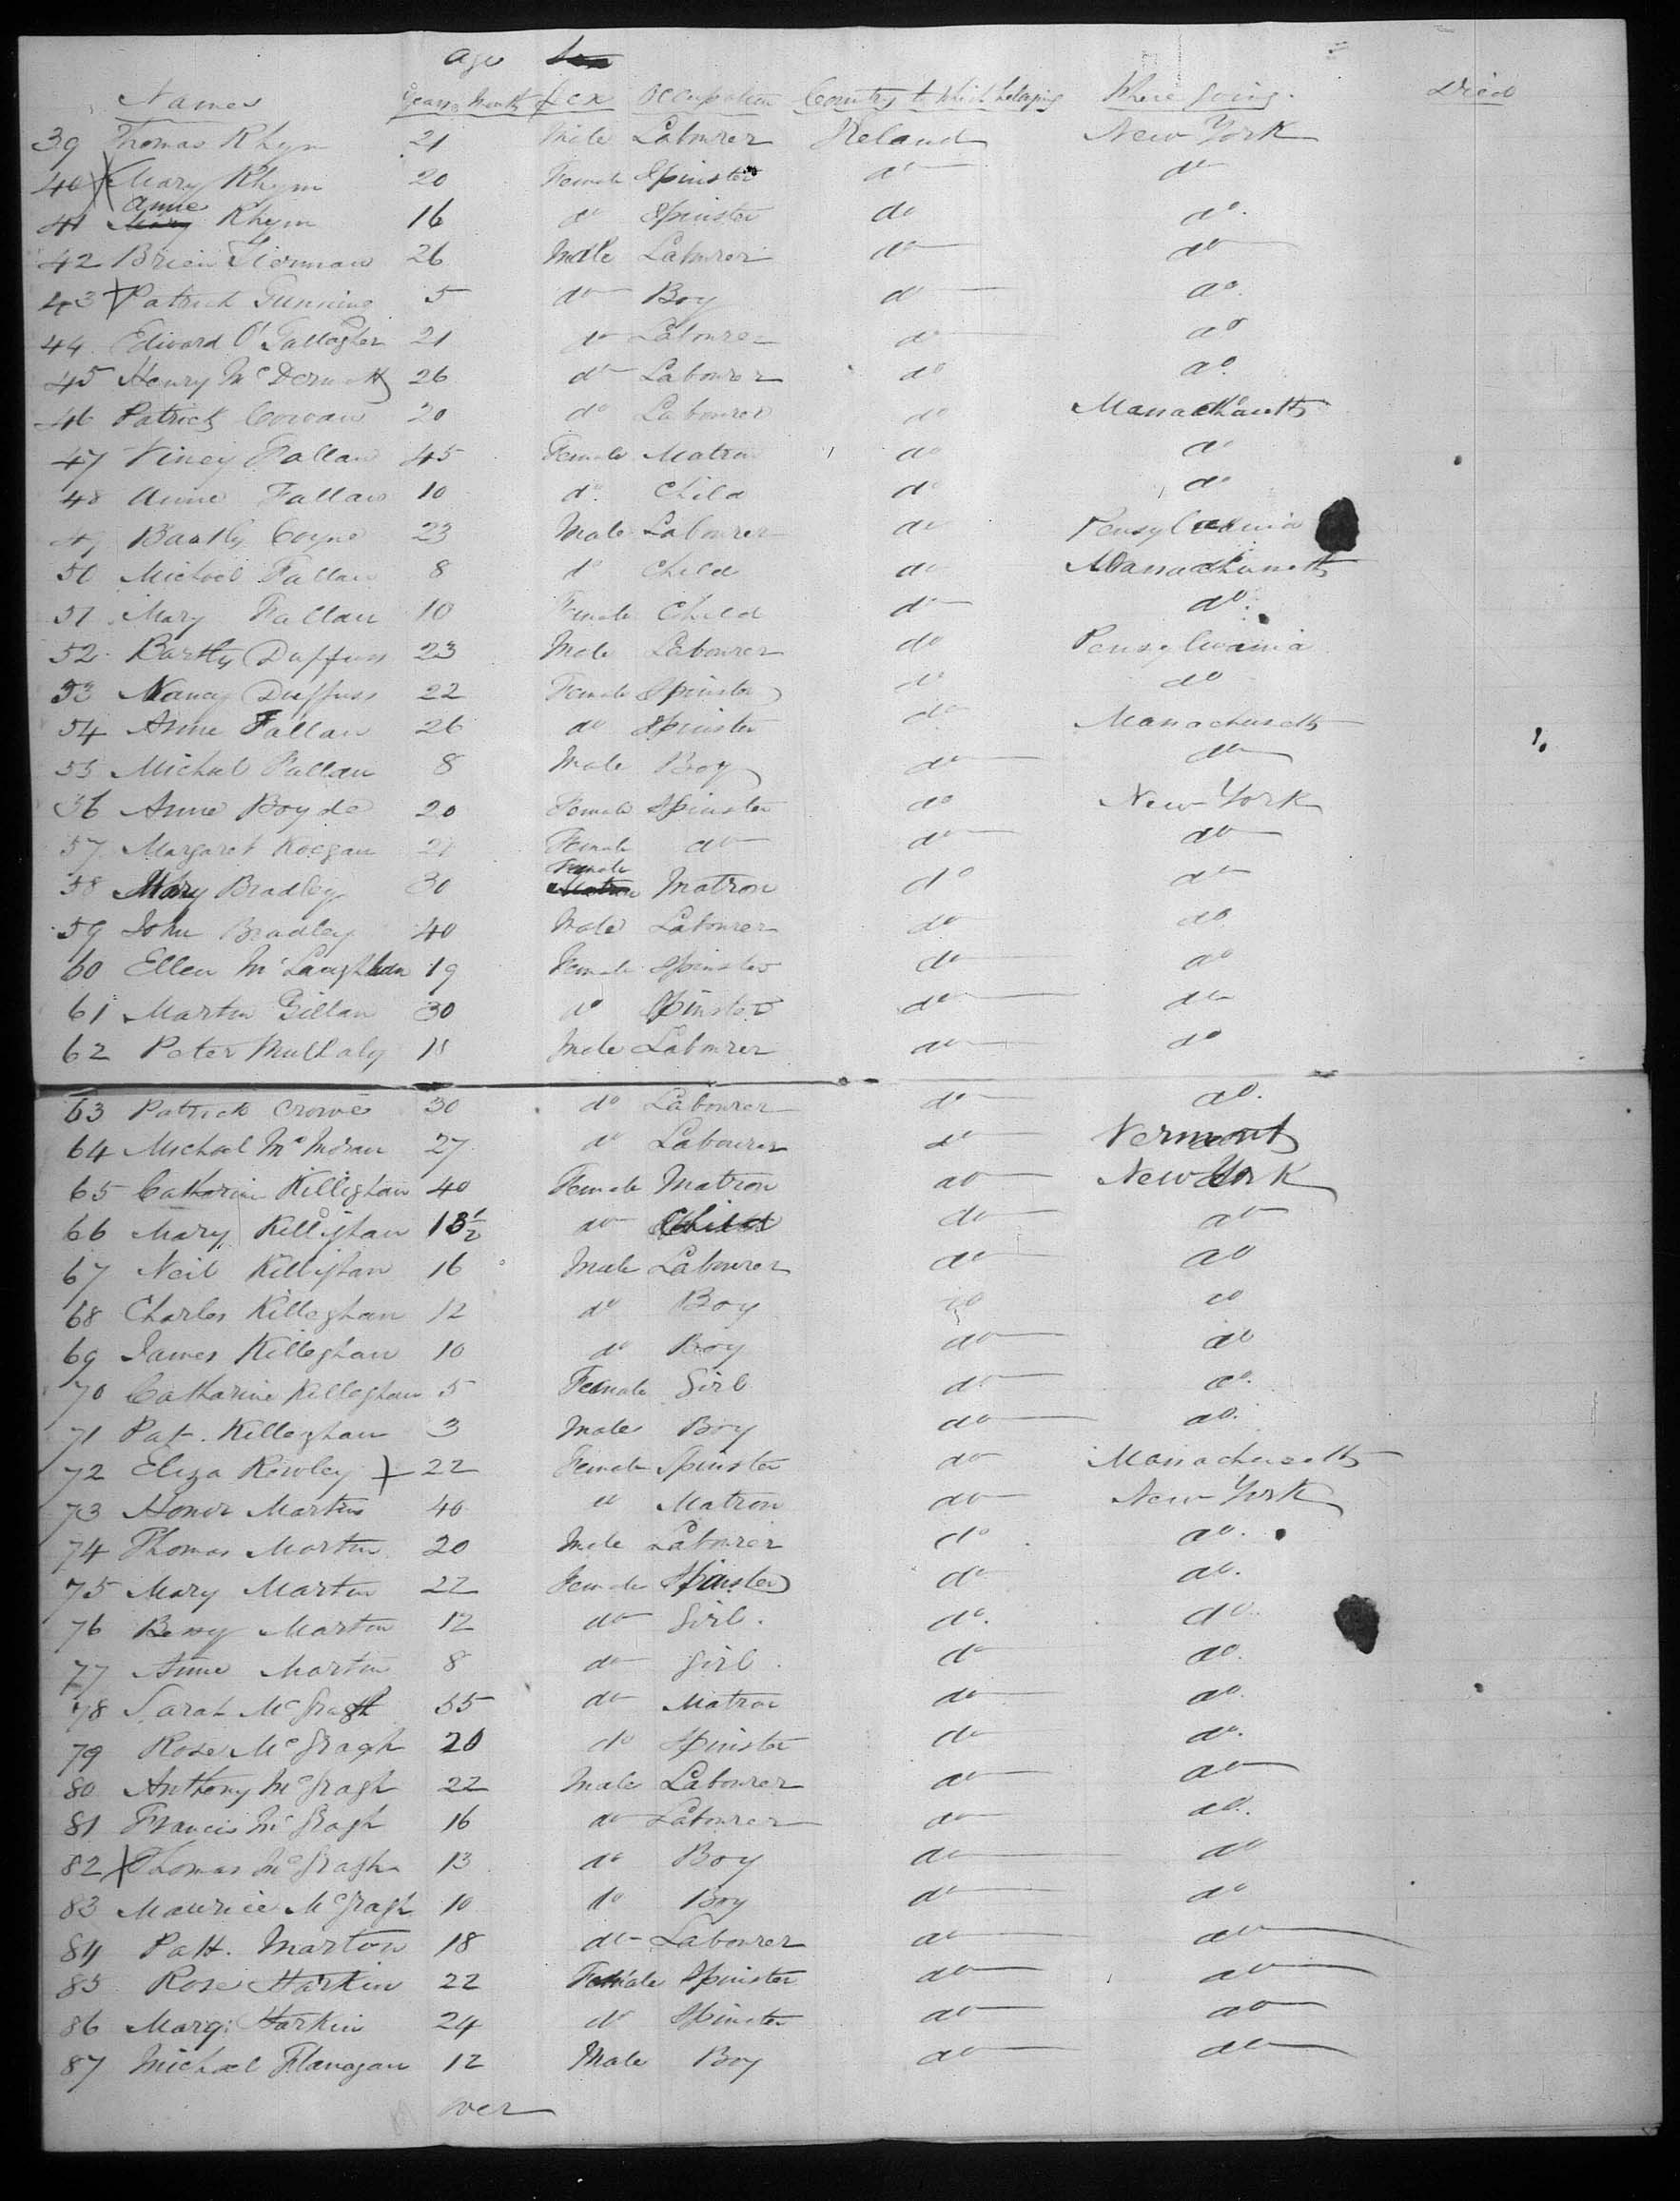 age
Names Years Months Sex Occupation Country to which belonging Where going. Died
39 Thomas Rhyn 21 Male Labourer Ireland New York
40 Mary Rhym 20 Female Spinster do do
41 Anne Rhym 16 do Spinster do do.
42 Brien Tiernan 26 Male Labourer do do
43 Patrick Gunning 5 do Boy do do.
44 Edward O'Gallagher 21 do Labourer do do
45 Henry McDermott 26 do Labourer do do.
46 Patrick Cowan 20 do Labourer do Massachusetts
47 Viney Fallan 45 Female Matron do do
48 Anne Fallan 10 do. Child do do
49 Bartly Coyne 23 Male Labourer do Pensylvania
50 Michael Fallan 8 do Child do Massachusetts
51 Mary Fallan 10 Female Child do do.
52 Bartly Duffuss 23 Male Labourer do Pensylvania
53 Nancy Duffuss 22 Female Spinster do do
54 Anne Fallan 26 do Spinster do Massachusetts
55 Michal Fallan 8 Male Boy do do
56 Anne Boyde 20 Female Spinster do New York
57 Margaret Keegan Female do do do
58 Mary Bradley 30 Female Matron do do
59 John Bradley 40 Male Labourer do do
60 Ellen McLaughlan 19 Female Spinster do do
61 Martin Gillan 30 do Spinster do do
62 Peter Mullaly 18 Male Labourer do do
63 Patrick Crowe 30 do Labourer do do.
64 Michael McMoran 27 do Labourer do Vermont
65 Catharine Killighan 40 Female Matron do New York
66 Mary Killighan 13½ do Child do do
67 Neil Killighan 16 Male Labourer do do
68 Charles Killeghan 12 do Boy do do
69 James Killeghan 10 do Boy do do
70 Catharine Killeghan 5 Female Girl do do.
71 Pat. Killeghan 3 Male Boy do do.
72 Eliza Rowley 22 Female Spinster do Massachusetts
73 Honor Martin 40 do Matron do New York
74 Thomas Martin 20 Male Labourer do do.
75 Mary Martin 22 Female Spinster do do.
76 Bessy Martin 12 do Girl. do. do.
77 Anne Martin 8 do Girl. do do.
78 Sarah McGragh 55 do Matron do do.
79 Rose McGragh 20 do Spinster do do.
80 Anthony McGragh 22 Male Labourer do do
81 Francis McGragh 16 do Labourer do do.
82 Thomas McGragh 13 do Boy do do
83 Maurice McGragh 10 do Boy do do
84 Patt. Marton 18 do Labourer do do
85 Rose Harkin 22 Female Spinster do do
86 Marg: Harkin 24 do Spinster do do
87 Michael Flanagan 12 Male Boy do do
over